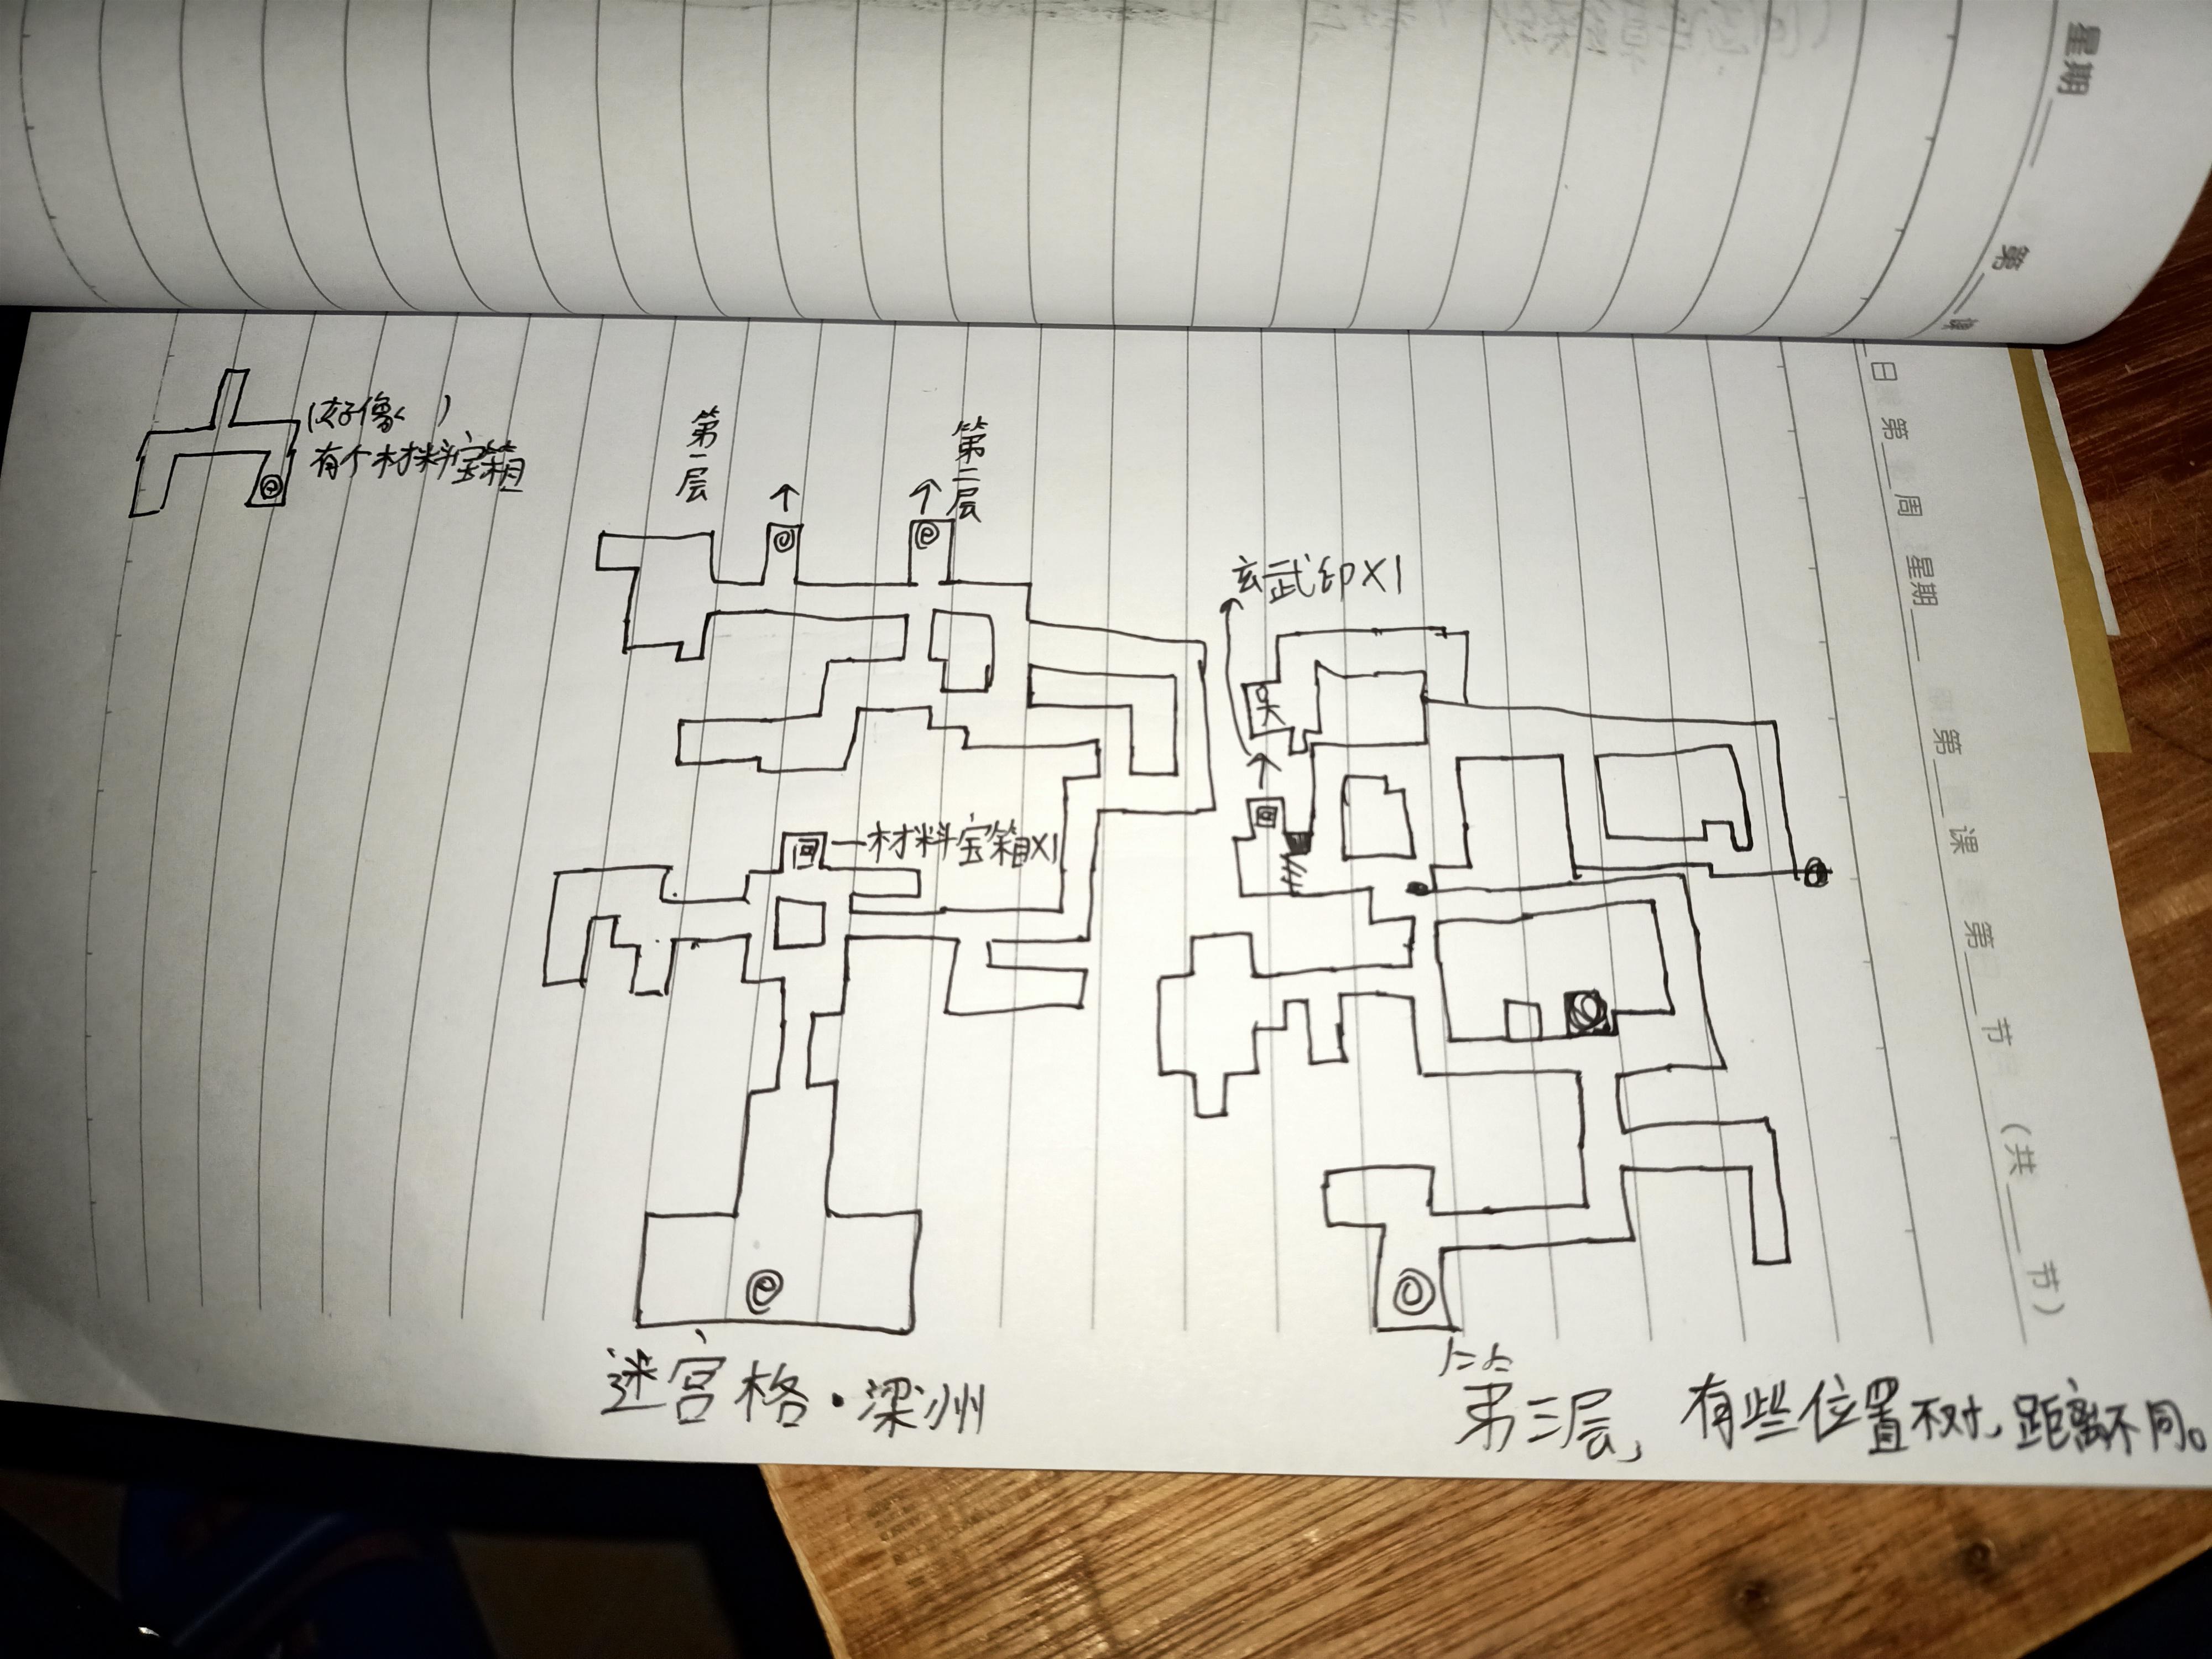 星期
第
课
(好像 )
有个材料宝箱
第一层
第二层
玄武印X1
材料宝箱X1
迷宫格·梁州
第三层, 有些位置不对, 距离不同。
日 第 周 星期 第 课 第 节 (共 节)